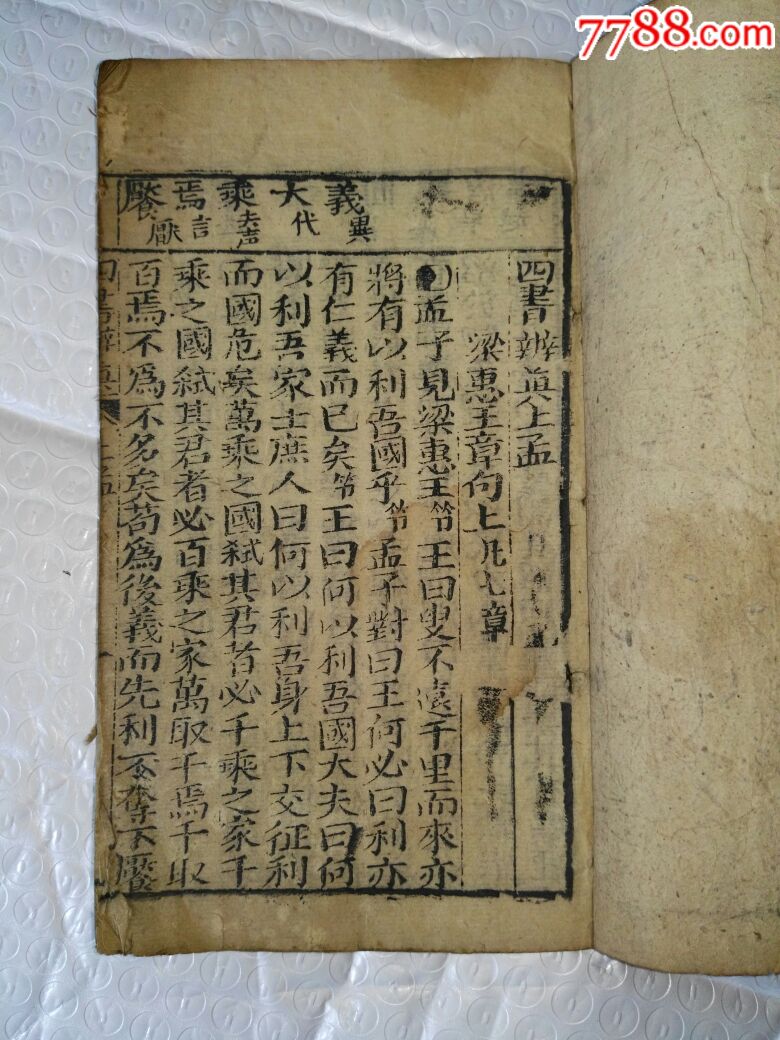 7788.com
四書辨真上孟
梁惠王章句上凡七章
孟子見梁惠王節王曰叟不遠千里而來亦
將有以利吾國乎節孟子對曰王何必曰利亦
有仁義而已矣節王曰何以利吾國大夫曰何
以利吾家士庶人曰何以利吾身上下交征利
而國危矣萬乘之國弒其君者必千乘之家千
乘之國弒其君者必百乘之家萬取千焉千取
百焉不為不多矣苟為後義而先利不奪不饜
義異
大代
乘去声
焉言
饜厭
四書辨真
上孟